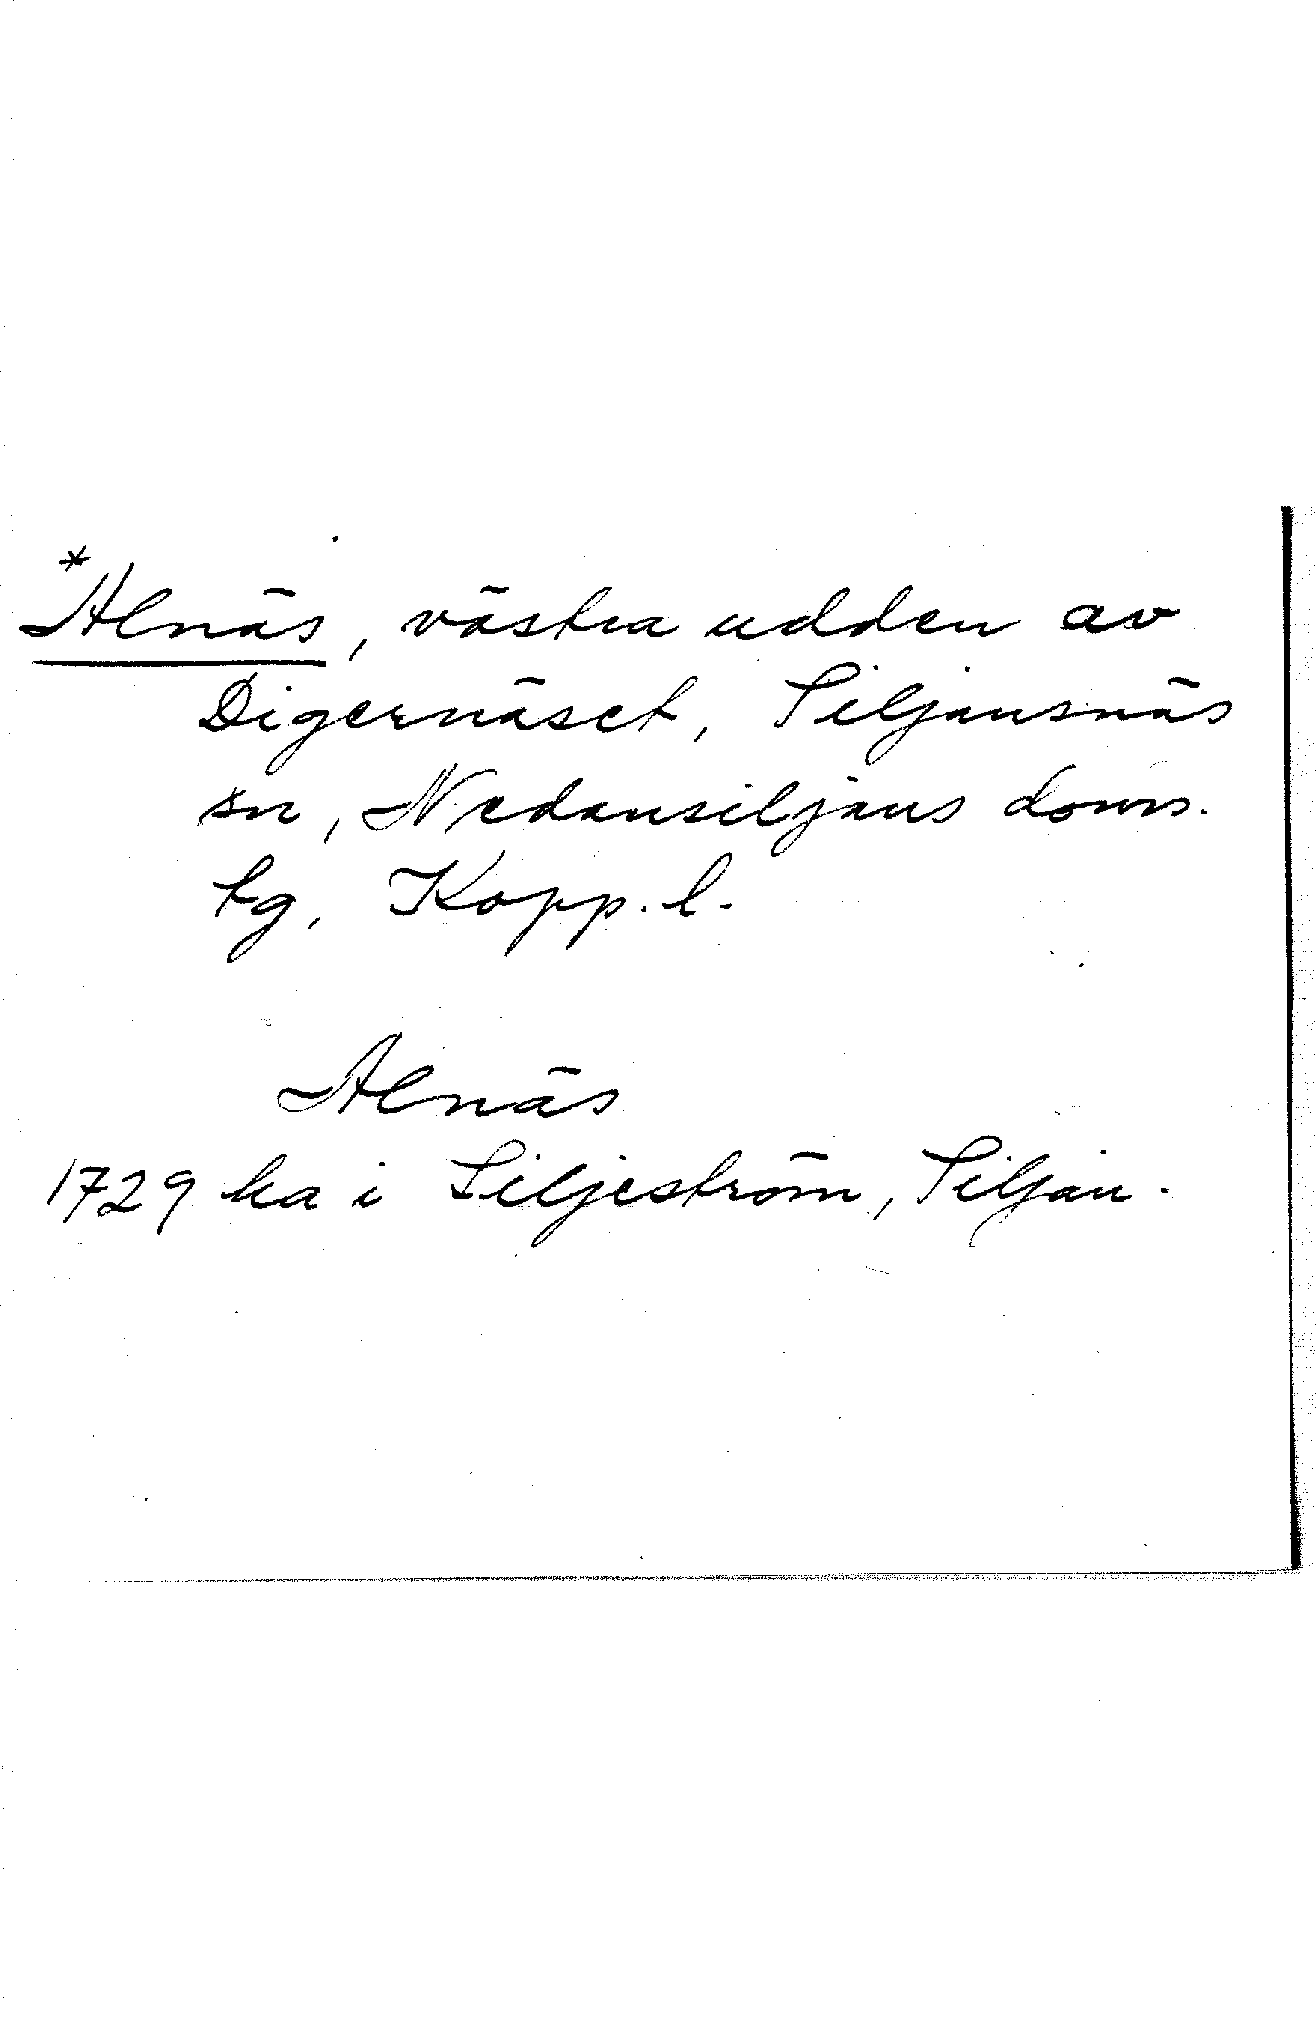 *Alnäs, västra udden av
Digernäset, Siljansnäs
sn, Nedansiljans doms.
tg, Kopp. l.
Alnäs
1729 ka i Siljeström, Siljan.